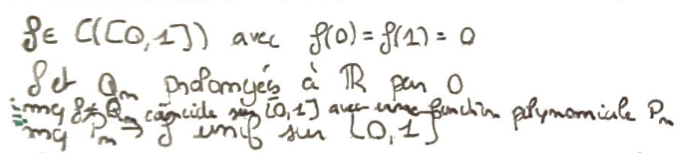 f ∈ C([0,1]) avec f(0) = f(1) = 0
f et Qn prolongées à ℝ par 0
mq f * Qn coïncide sur [0,1] avec une function polynomiale Pn
mq Pn → f unif sur [0,1]